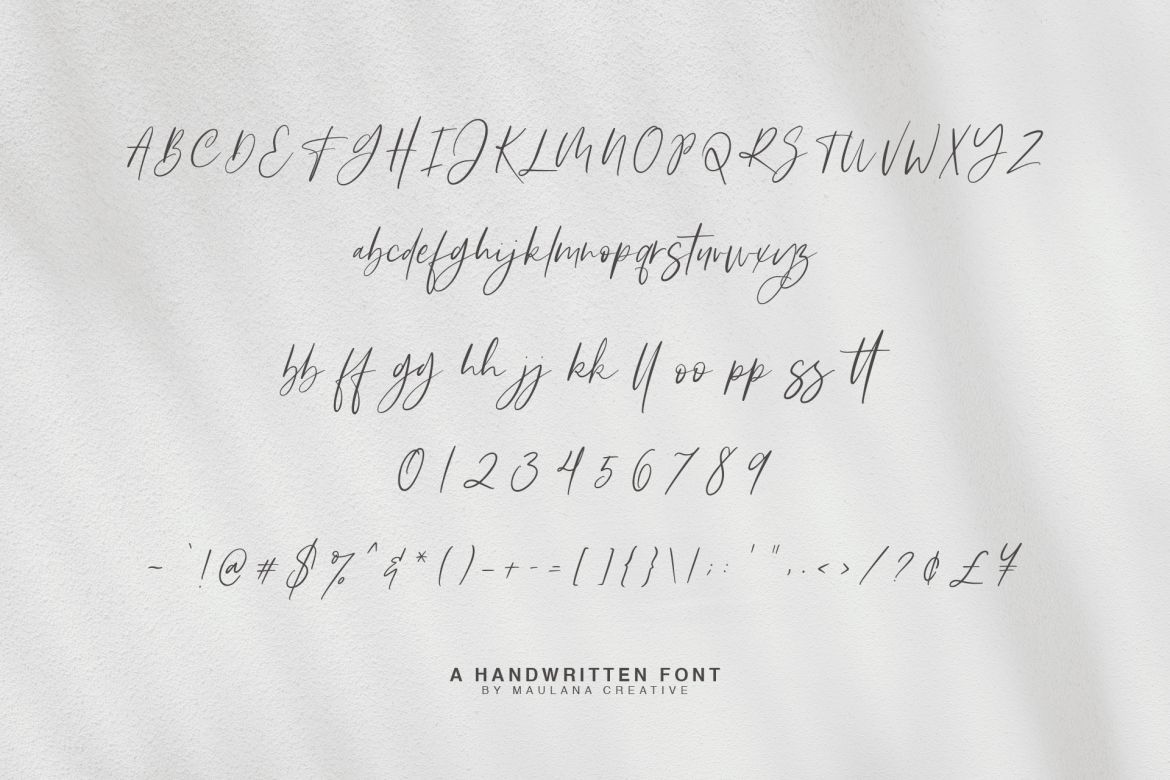 A B C D E F G H I J K L M N O P Q R S T U V W X Y Z
abcdefghijklmnopqrstuvwxyz
bb ff gg hh jj kk ll oo pp ss tt
0 1 2 3 4 5 6 7 8 9
~ ` ! @ # $ % ^ & * ( ) – + - = [ ] { } \ | ; : ' " , . < > / ? ¢ £ ¥
A HANDWRITTEN FONT
BY MAULANA CREATIVE